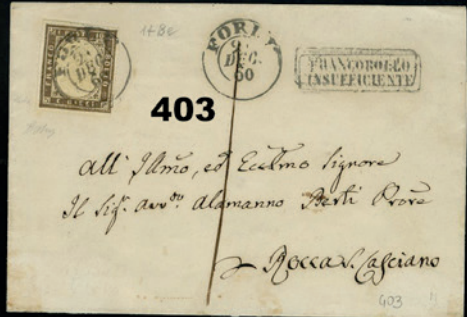 FORLI
DEC.
60
FRANCOBOLLO
INSUFFICIENTE
403
All' Illmo, ed Eccellmo Signore
Il Sigr. Avvto. Alamanno Berti Prove
Rocca S. Casciano
403